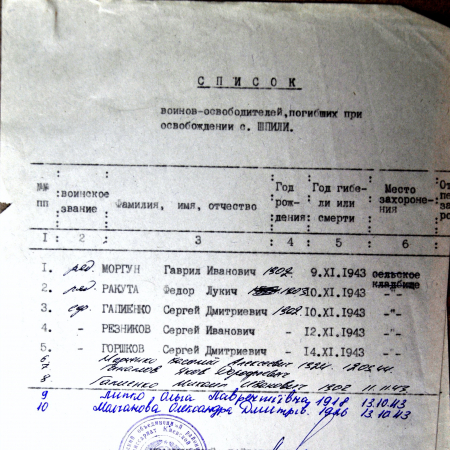 СПИСОК
воинов-освободителей,погибших при
освобождении с. ШПИЛИ.
№№ пп : воинское звание : Фамилия, имя, отчество : Год рождения : Год гибели или смерти : Место захоронения :
I : 2 : 3 : 4 : 5 : 6 :
I. ряд. МОРГУН Гаврил Иванович 1902 9.XI.I943 сельское кладбище
2. ряд. РАКУТА Федор Лукич 1903 IO.XI.I943 -"-
3. ГАПИЕНКО Сергей Дмитриевич IO.XI.I943 -"-
4. - РЕЗНИКОВ Сергей Иванович - I2.XI.I943 -"-
5. - ГОРШКОВ Сергей Дмитриевич - I4.XI.I943 -"-
6 Василий Алексеевич 1924
7 Яков
8 Гапиенко Михаил Иванович 1902 11.11.43
9 Липко Ольга 1918 13.10.43
10 Олександра Дмитрів. 1926 13.10.43